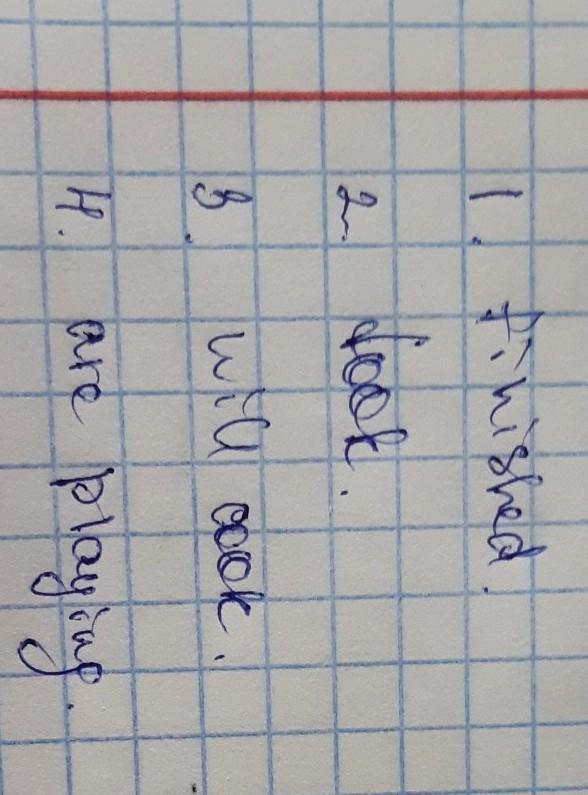 1. finished.
2. took.
3. will cook.
4. are playing.